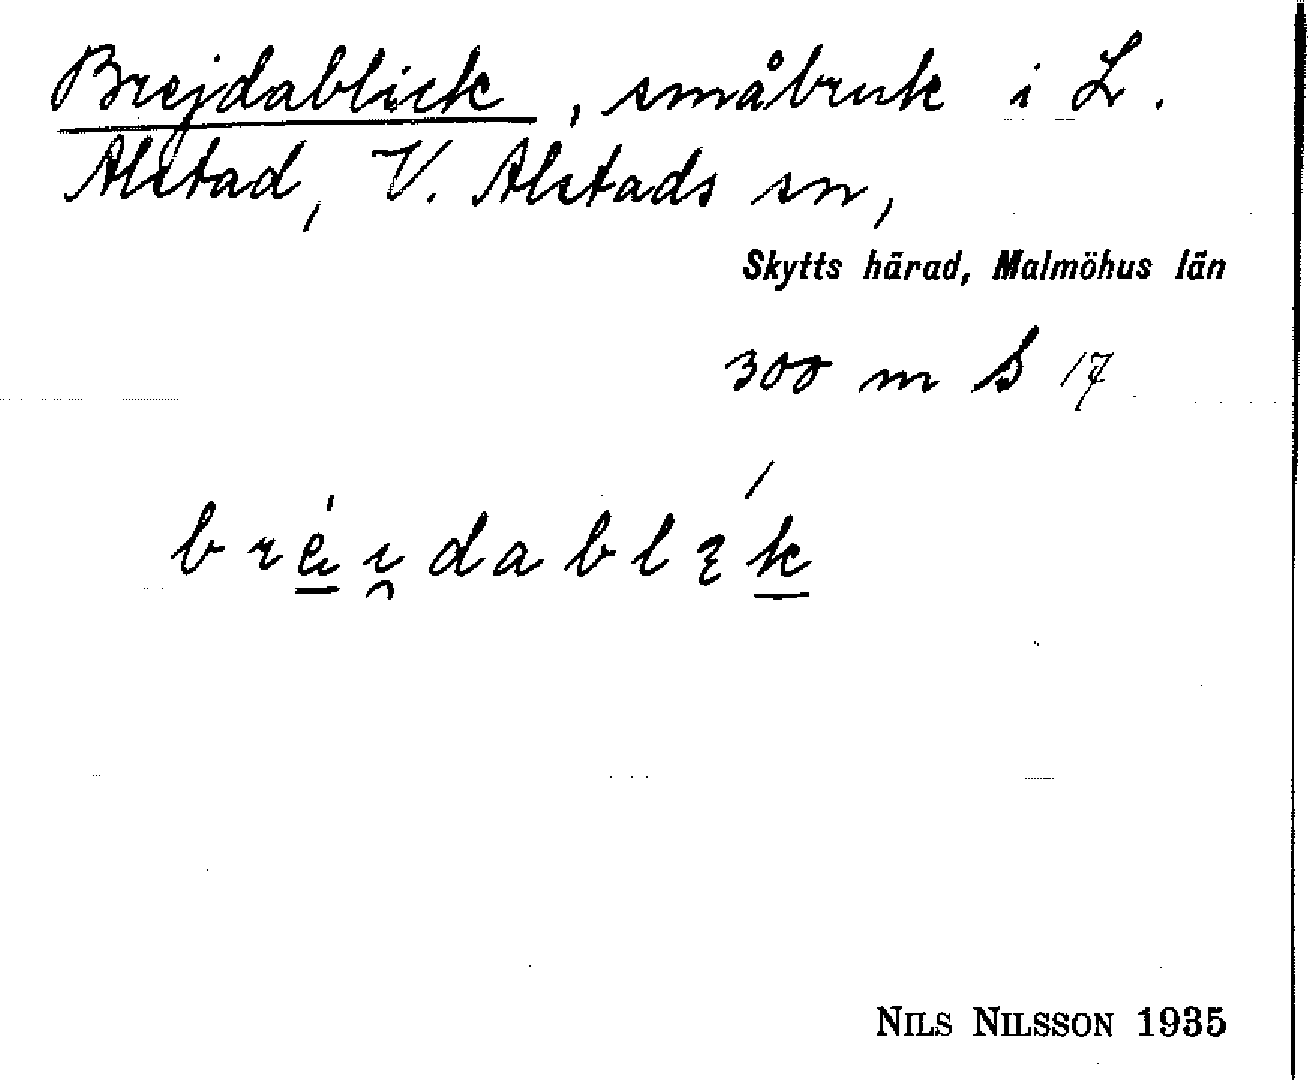 Brejdablick, småbruk i L.
Alstad, V. Alstads sn,
Skytts härad, Malmöhus län
300 m S 17
NILS NILSSON 1935